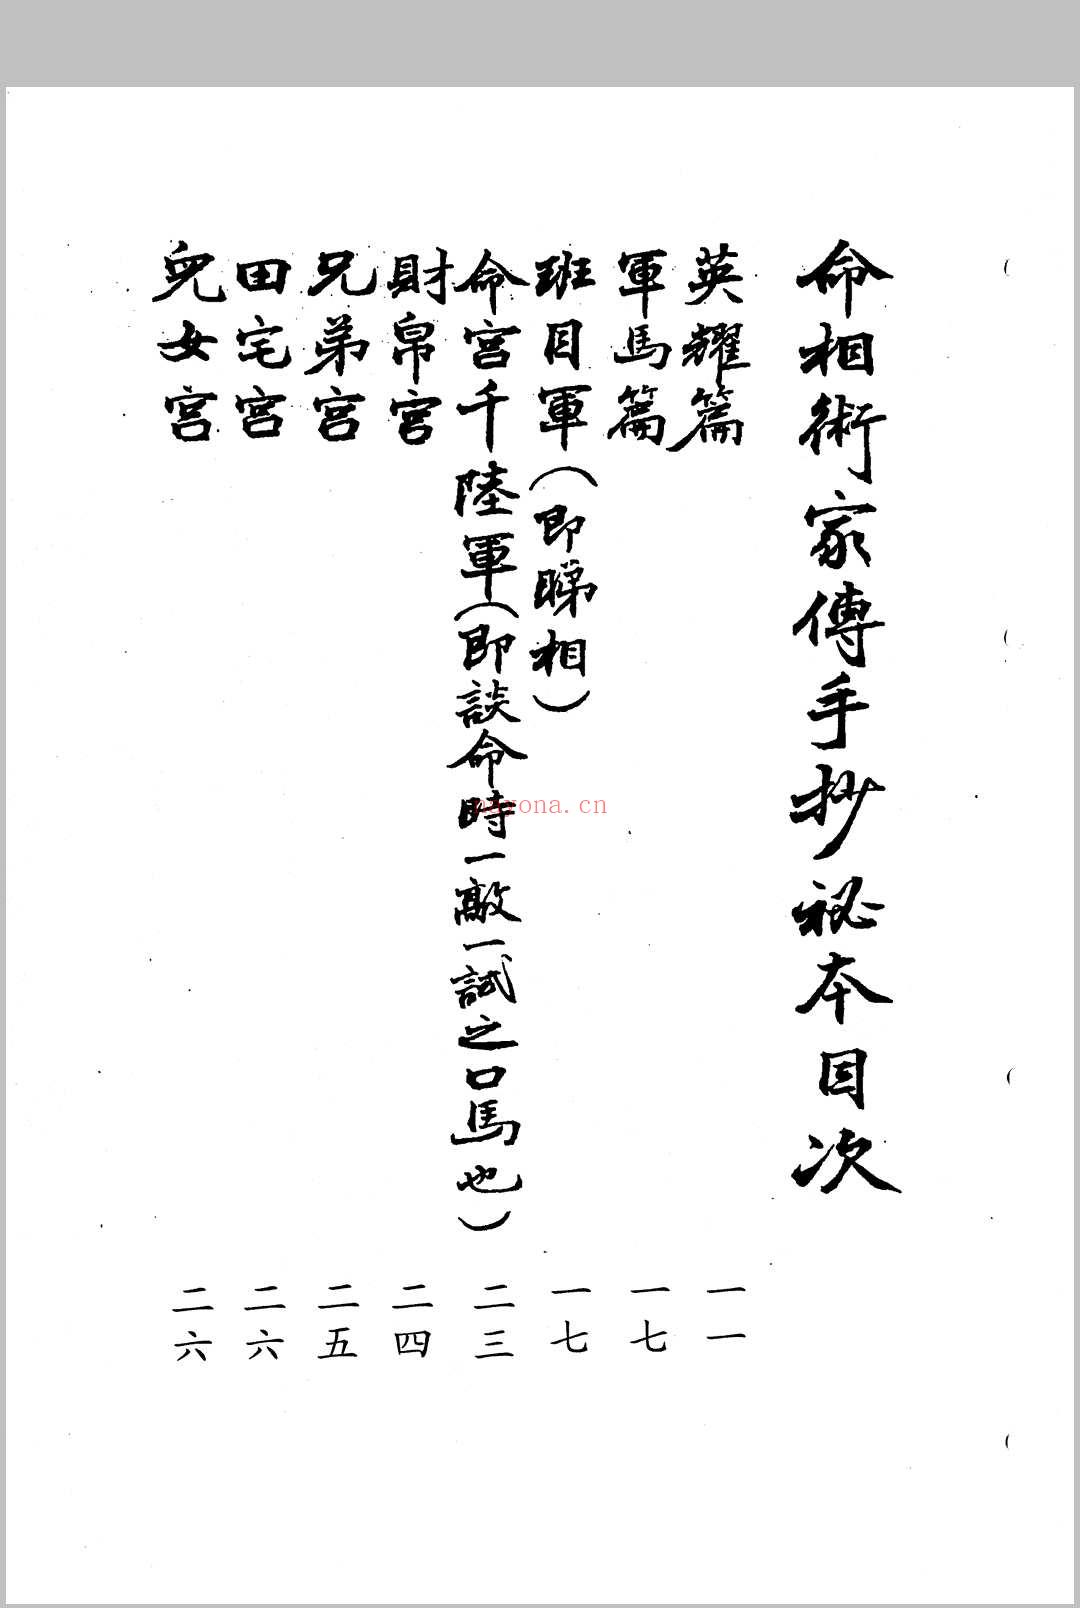 命相術家傳手抄祕本目次
英耀篇 一一
軍馬篇 一七
班目軍(即睇相) 一七
命宮千陸軍(即談命時一敲一試之口馬也) 二三
財帛宮 二四
兄弟宮 二五
田宅宮 二六
兒女宮 二六
nayona.cn